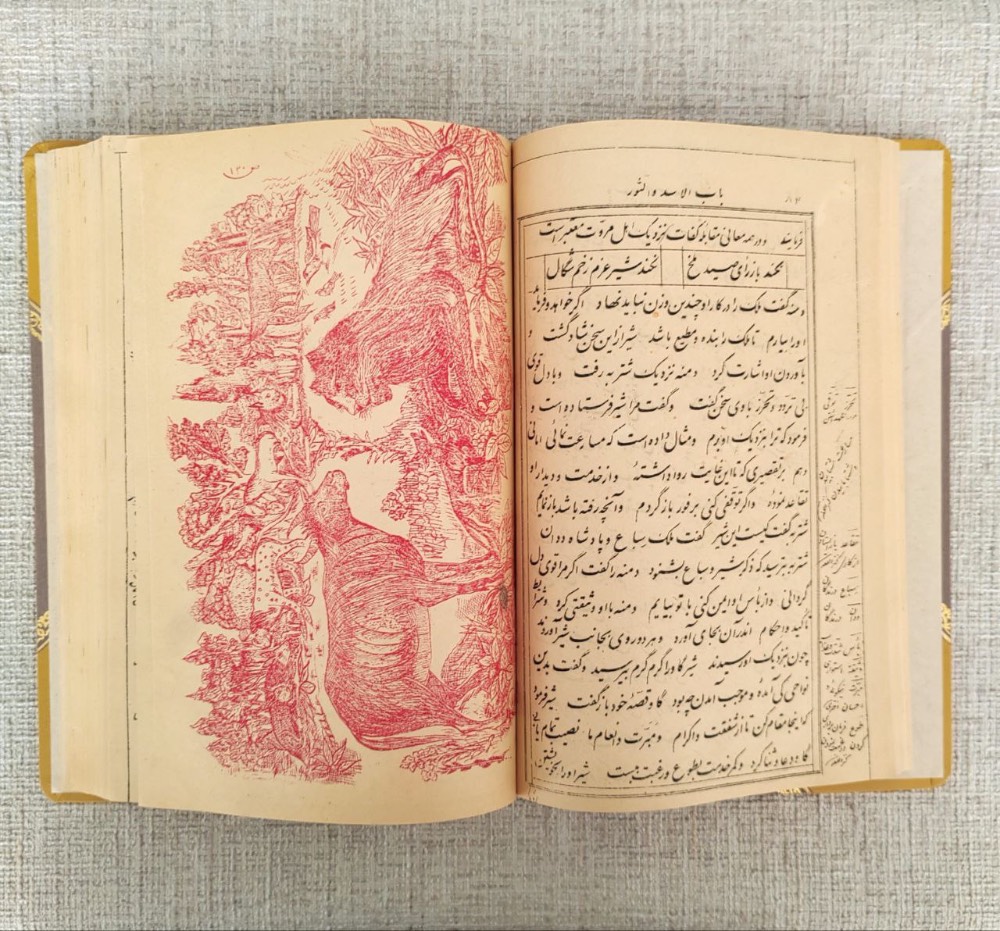 باب الاسد والثور
فرمایند و در همه معانی مقابله کفات نزدیک اهل مروت معتبر است
نکند باز رای صید ملخ نکند شیر عزم زخم شگال
دمنه گفت ملک را در کار او چندین وزن نباید نهاد و اگر خواهد و فرماید
او را بیارم تا ملک را بنده و مطیع باشد شیر از این سخن شاد گشت و
بآوردن او اشارت کرد دمنه نزدیک شتربه رفت و با دل قوی
بی تردد و تحرز با وی سخن گفت و گفت مرا شیر فرستاده است و
فرموده که ترا بنزدیک او برم و مثال داده است که مسارعت نمائی امانی
دهم بر تقصیری که تا این غایت روا داشتهٔ و از خدمت و دیدار او
تقاعد نموده و اگر توقفی کنی بر فور باز گردم و آنچه رفته باشد باز نمایم
شتربه گفت کیست این شیر گفت ملک سباع و پادشاه ددان
شتربه بترسید که ذکر شیر و سباع بشنود دمنه را گفت اگر مرا قوی دل
گردانی و از باس او ایمن کنی با تو بیایم دمنه با او وثیقتی کرد و شرایط
تاکید و احکام اندران بجای آورد و هر دو روی بجانب شیر آوردند
چون نزدیک او رسیدند شیر گاو را گرم گرم بپرسید و گفت بدین
نواحی کی آمدهٔ و موجب امدن چه بود گاو قصه خود باز گفت شیر فرمود
که اینجا مقام کن تا از شفقت و اکرام و مبرت و انعام ما نصیب تمام یابی
گاو دعا و ثنا کرد و کمر خدمت بطوع و رغبت ببست شیر او را بخویشتن
ص ۱۳۰